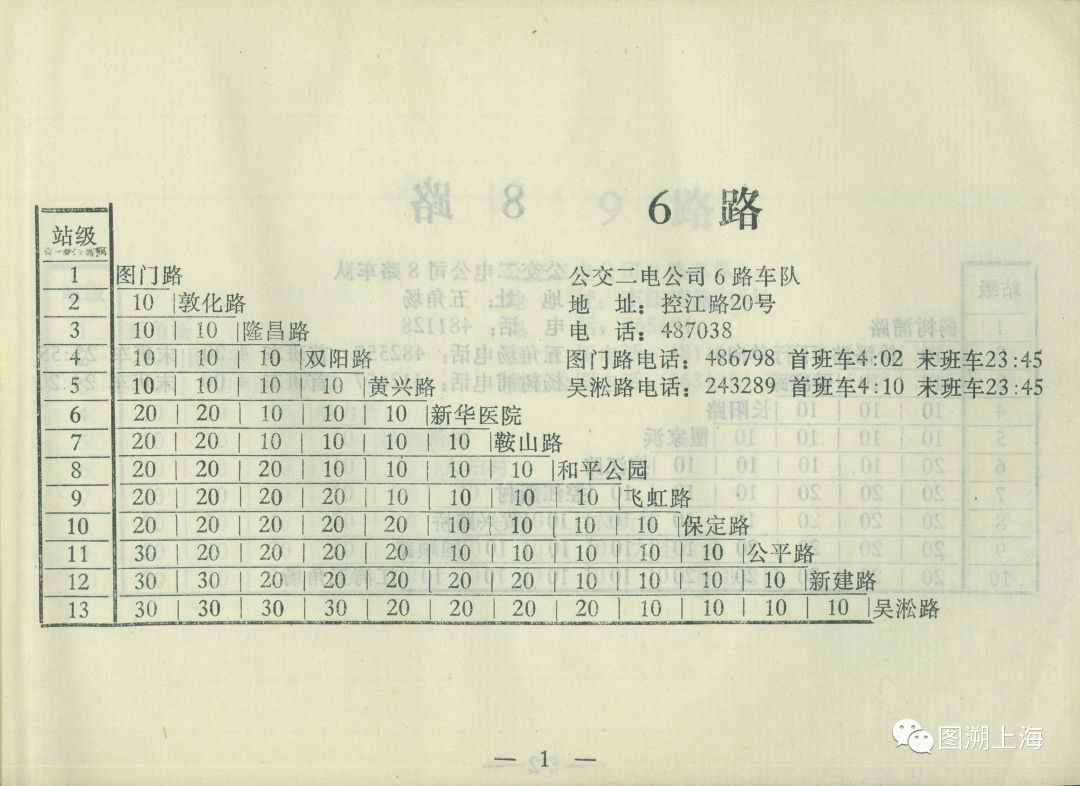 6 路
站级
1 图门路 公交二电公司6路车队
2 10 敦化路 地 址：控江路20号
3 10 10 隆昌路 电 话：487038
4 10 10 10 双阳路 图门路电话：486798 首班车4:02 末班车23:45
5 10 10 10 10 黄兴路 吴淞路电话：243289 首班车4:10 末班车23:45
6 20 20 10 10 10 新华医院
7 20 20 10 10 10 10 鞍山路
8 20 20 20 10 10 10 10 和平公园
9 20 20 20 20 10 10 10 10 飞虹路
10 20 20 20 20 10 10 10 10 10 保定路
11 30 20 20 20 20 10 10 10 10 10 公平路
12 30 30 20 20 20 20 20 10 10 10 10 新建路
13 30 30 30 30 20 20 20 20 10 10 10 10 吴淞路
图溯上海
— 1 —